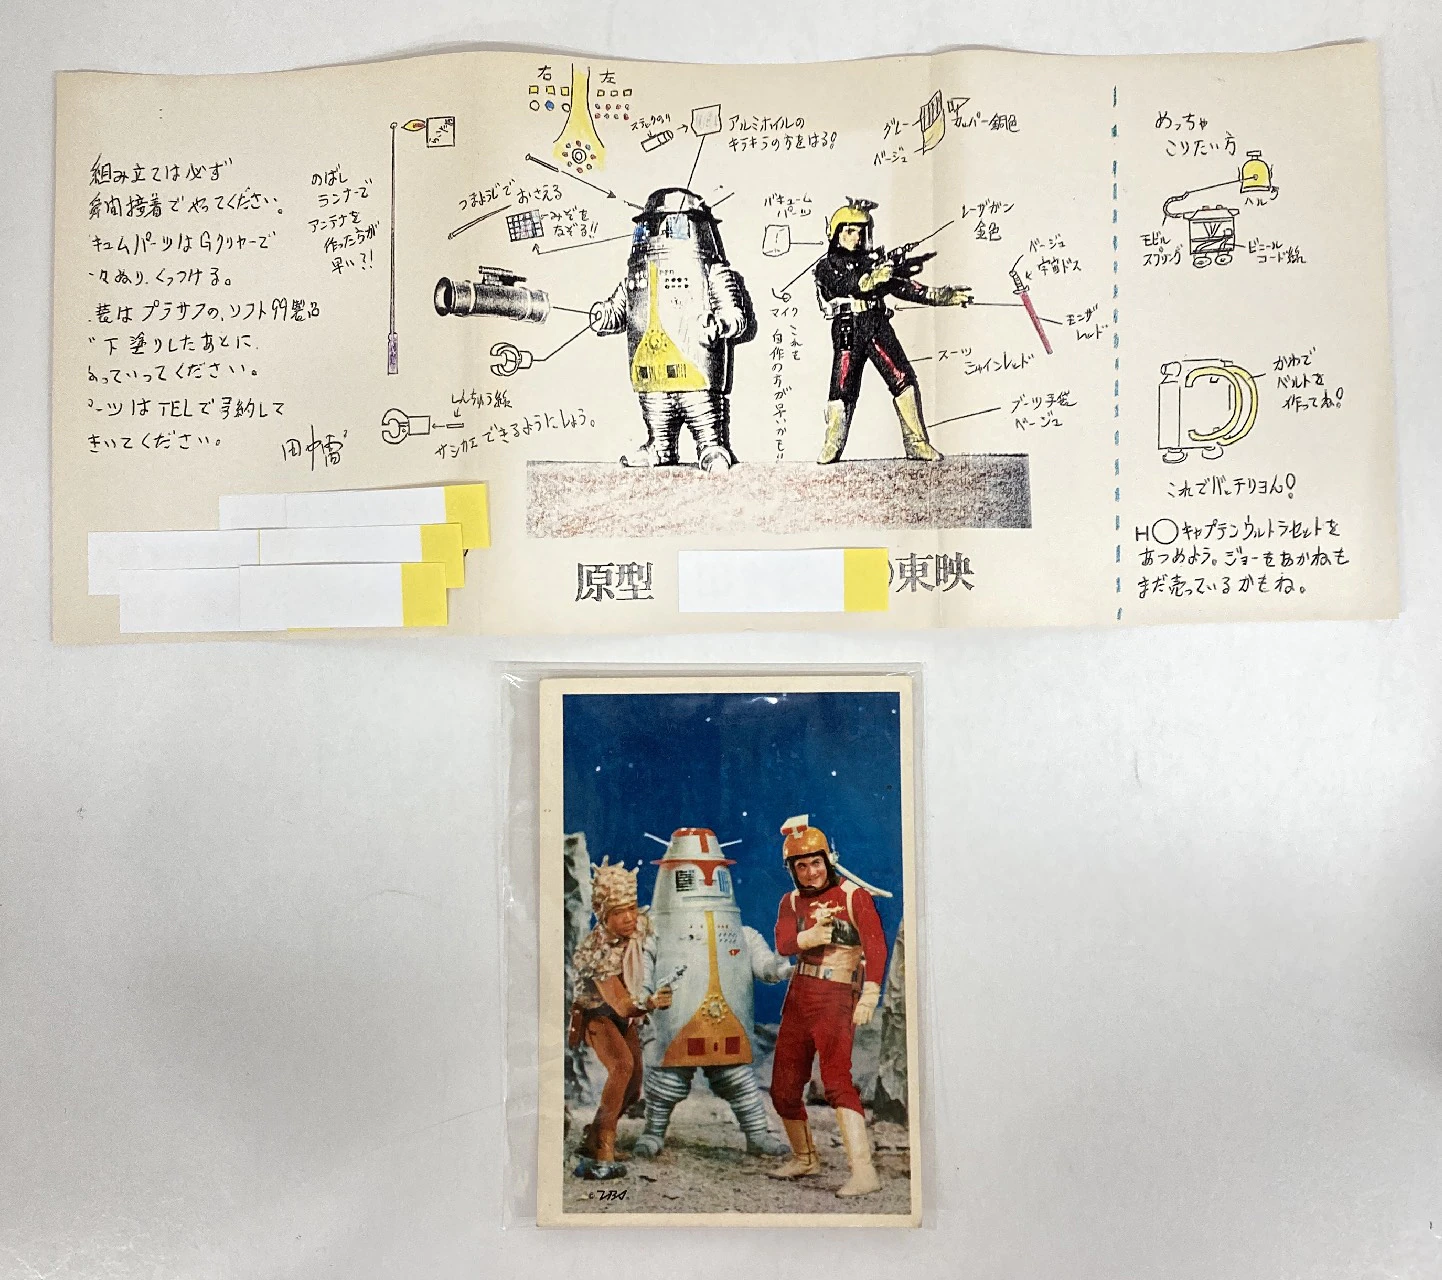 組み立ては必ず
瞬間接着でやってください。
キュムパーツはGクリヤーで
々ぬり、くっつける。
装はプラサフの、ソフト99製品
下塗りしたあとに、
ぬっていってください。
ーツはTELで予約して
きいてください。
田中雷
のばし
ランナーで
アンテナを
作った方が
早い?!
しんちゅう線
サシカエできるようにしよう。
右
左
つまようじでおさえる
みぞを
なぞる!!
スティックのり
アルミホイルの
キラキラの方をはる!
バキューム
パーツ
マイク
これも自作の方が早いかも!!
グレー
カッパー銅色
ベージュ
レーザガン
金色
ベージュ
宇宙ドス
モンザ
レッド
スーツ
シャインレッド
ブーツ手袋
ベージュ
原型
東映
めっちゃ
こりたい方
ベル
モビル
スプリング
ビニール
コード線
かわで
ベルトを
作ってね!
これでバッチリよん!
H○キャプテンウルトラセットを
あつめよう。ジョーもあかねも
まだ売っているかもね。
©TBS.